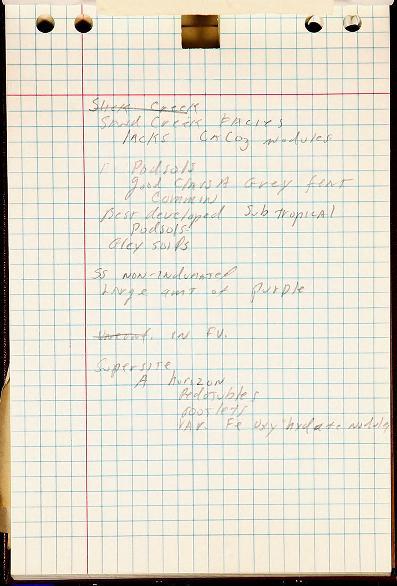 Slick Creek
Sand Creek Facies
lacks CaCO3 nodules
Podsols
good Class A Grey
Common
Best developed Sub tropical
Podsols
Gley soils
SS non-indurated
Large amt of purple
in FU.
Supersite
A horizon
Pedotubles
rootlets
VAR. Fe oxy hydate nodules